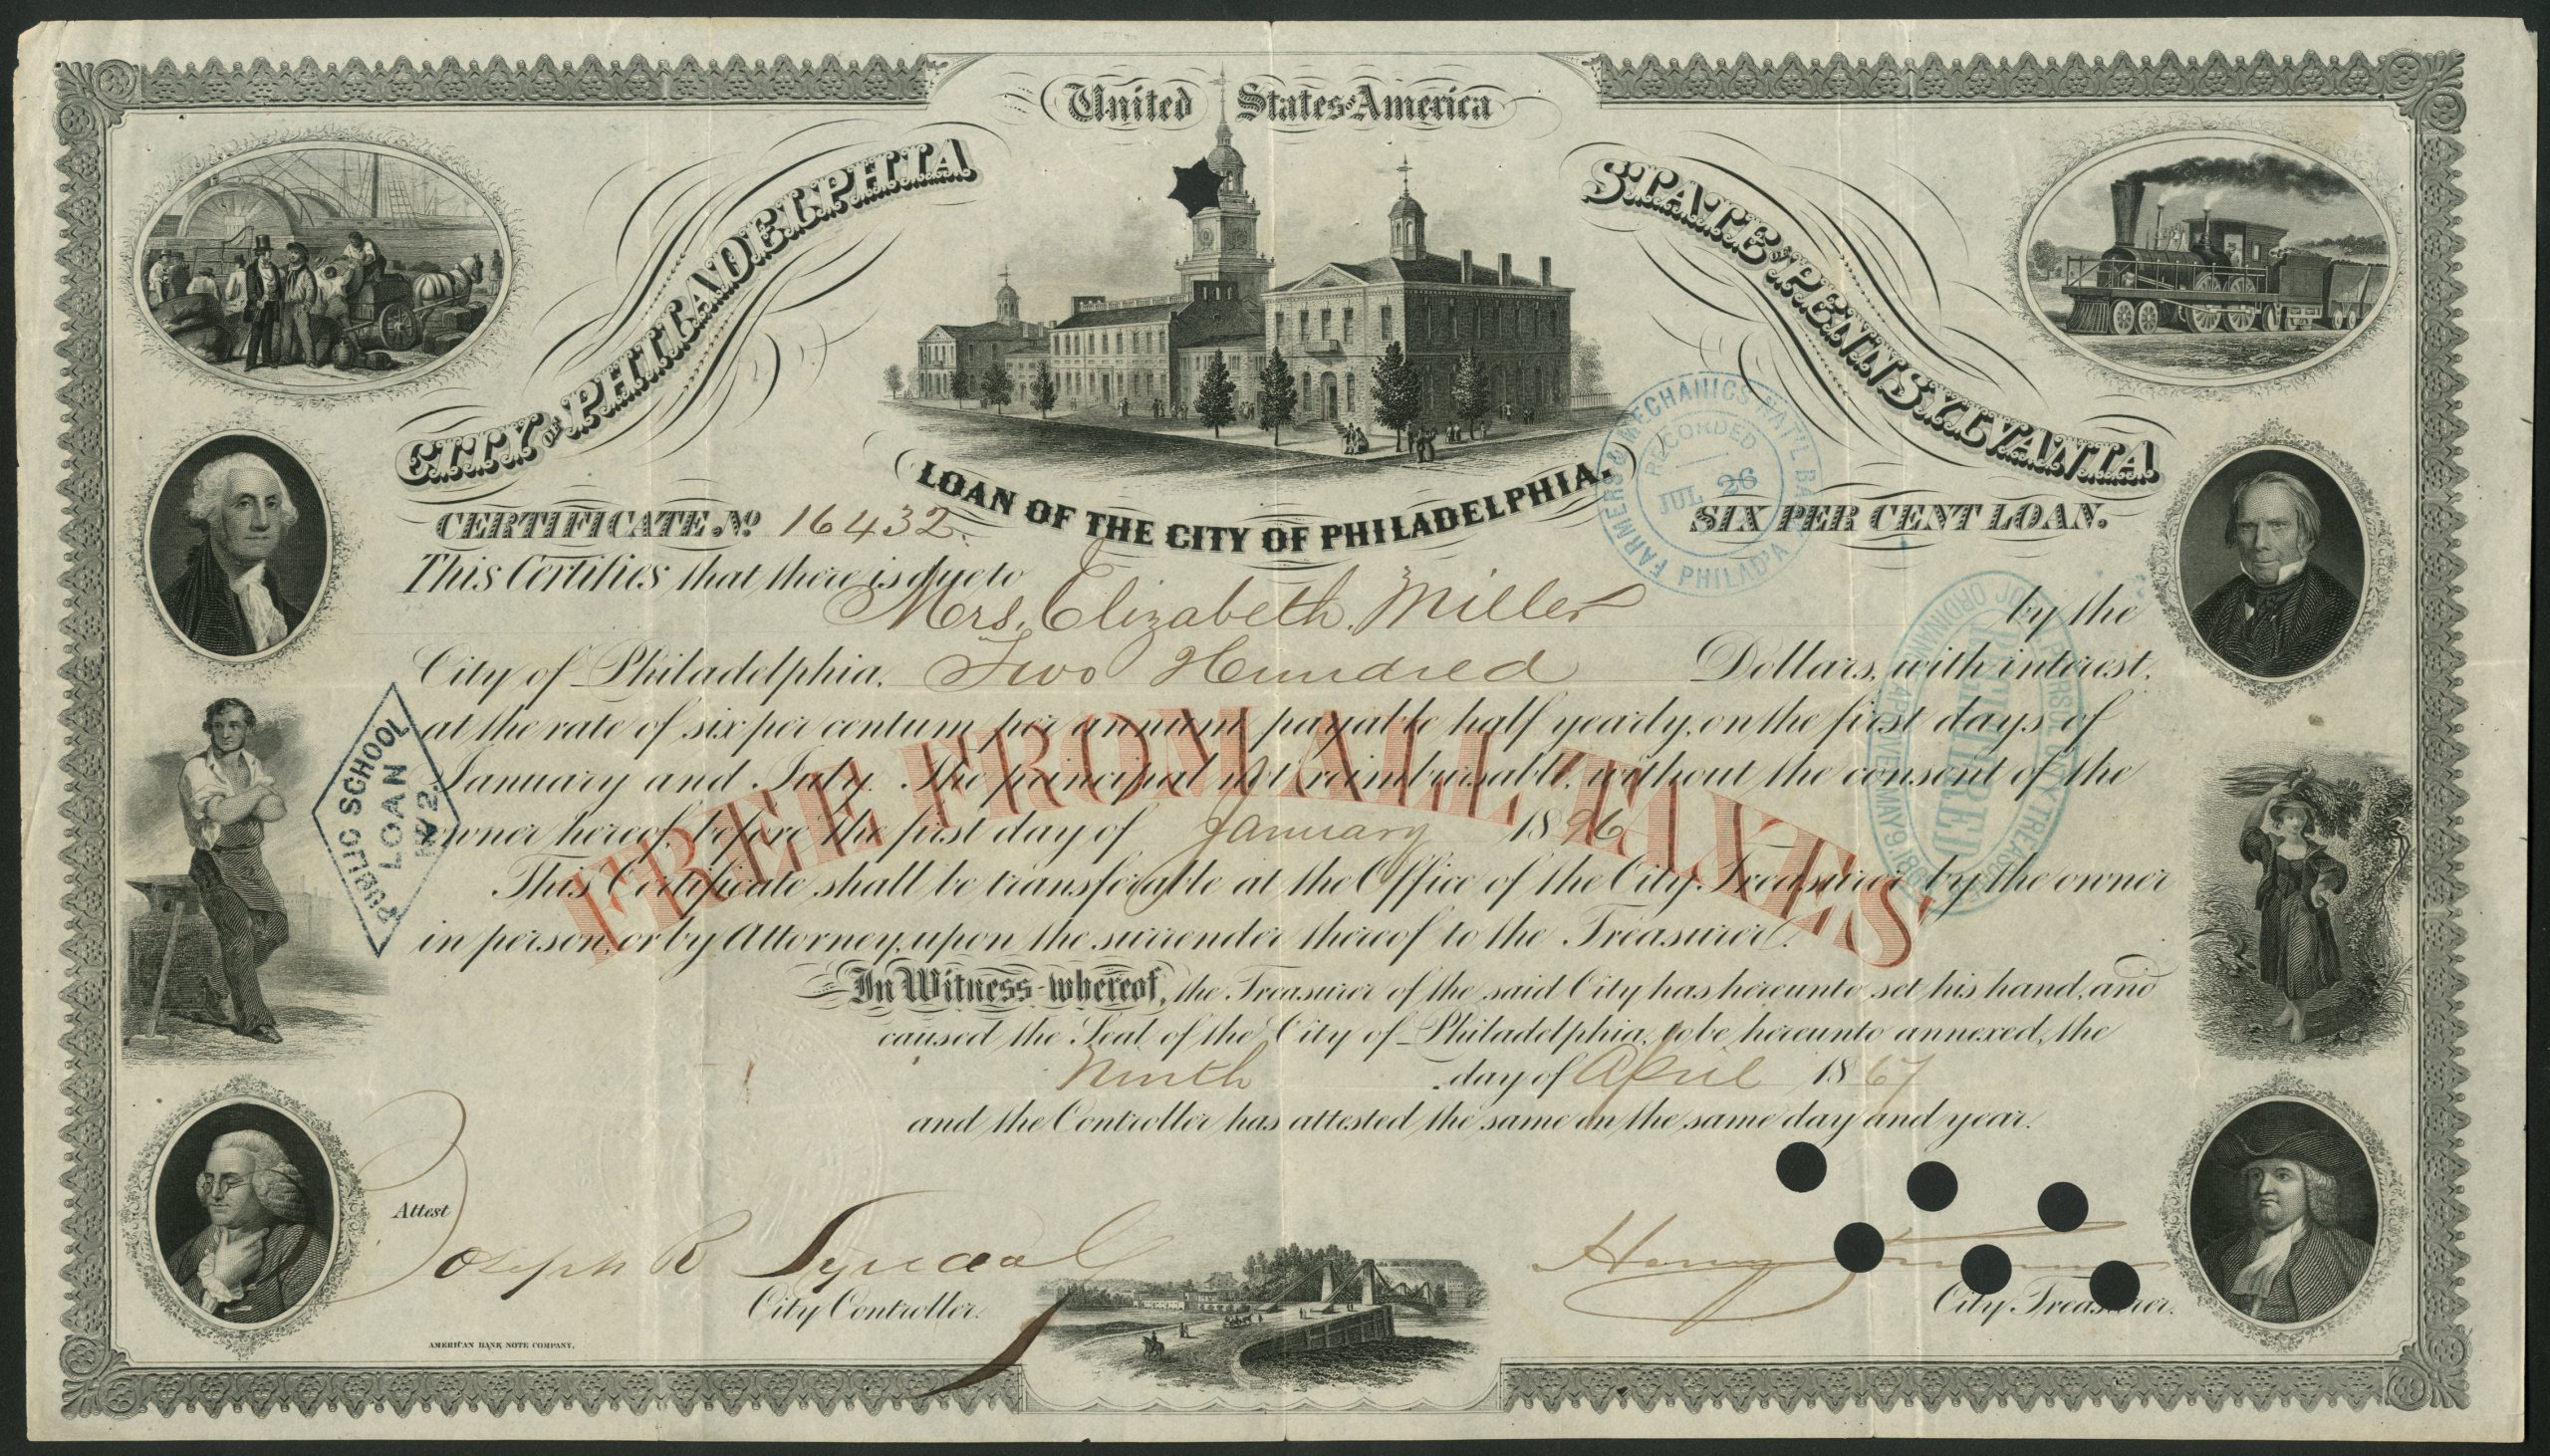 United States of America
CITY OF PHILADELPHIA
STATE OF PENNSYLVANIA
LOAN OF THE CITY OF PHILADELPHIA.
CERTIFICATE No 16432.
SIX PER CENT LOAN.
FARMERS & MECHANICS NAT'L BANK
RECORDED
JUL 26
PHILAD'A
This Certifies that there is due to
Mrs. Elizabeth Miller by the
City of Philadelphia, Two Hundred Dollars, with interest,
at the rate of six per centum per annum payable half yearly, on the first days of
January and July. The principal not reimbursable, without the consent of the
owner hereof, before the first day of January 1896
This Certificate shall be transferable at the Office of the City Treasurer by the owner
in person, or by Attorney, upon the surrender thereof to the Treasurer.
FREE FROM ALL TAXES
PUBLIC SCHOOL
LOAN
No 2.
ORDINANCE APPROVED MAY 9 1881
CITY TREASURER
In Witness whereof, the Treasurer of the said City has hereunto set his hand, and
caused the Seal of the City of Philadelphia, to be hereunto annexed, the
Ninth day of April 1867
and the Controller has attested the same on the same day and year.
Attest
Joseph R Lyndall
City Controller.
Henry
City Treasurer.
AMERICAN BANK NOTE COMPANY.